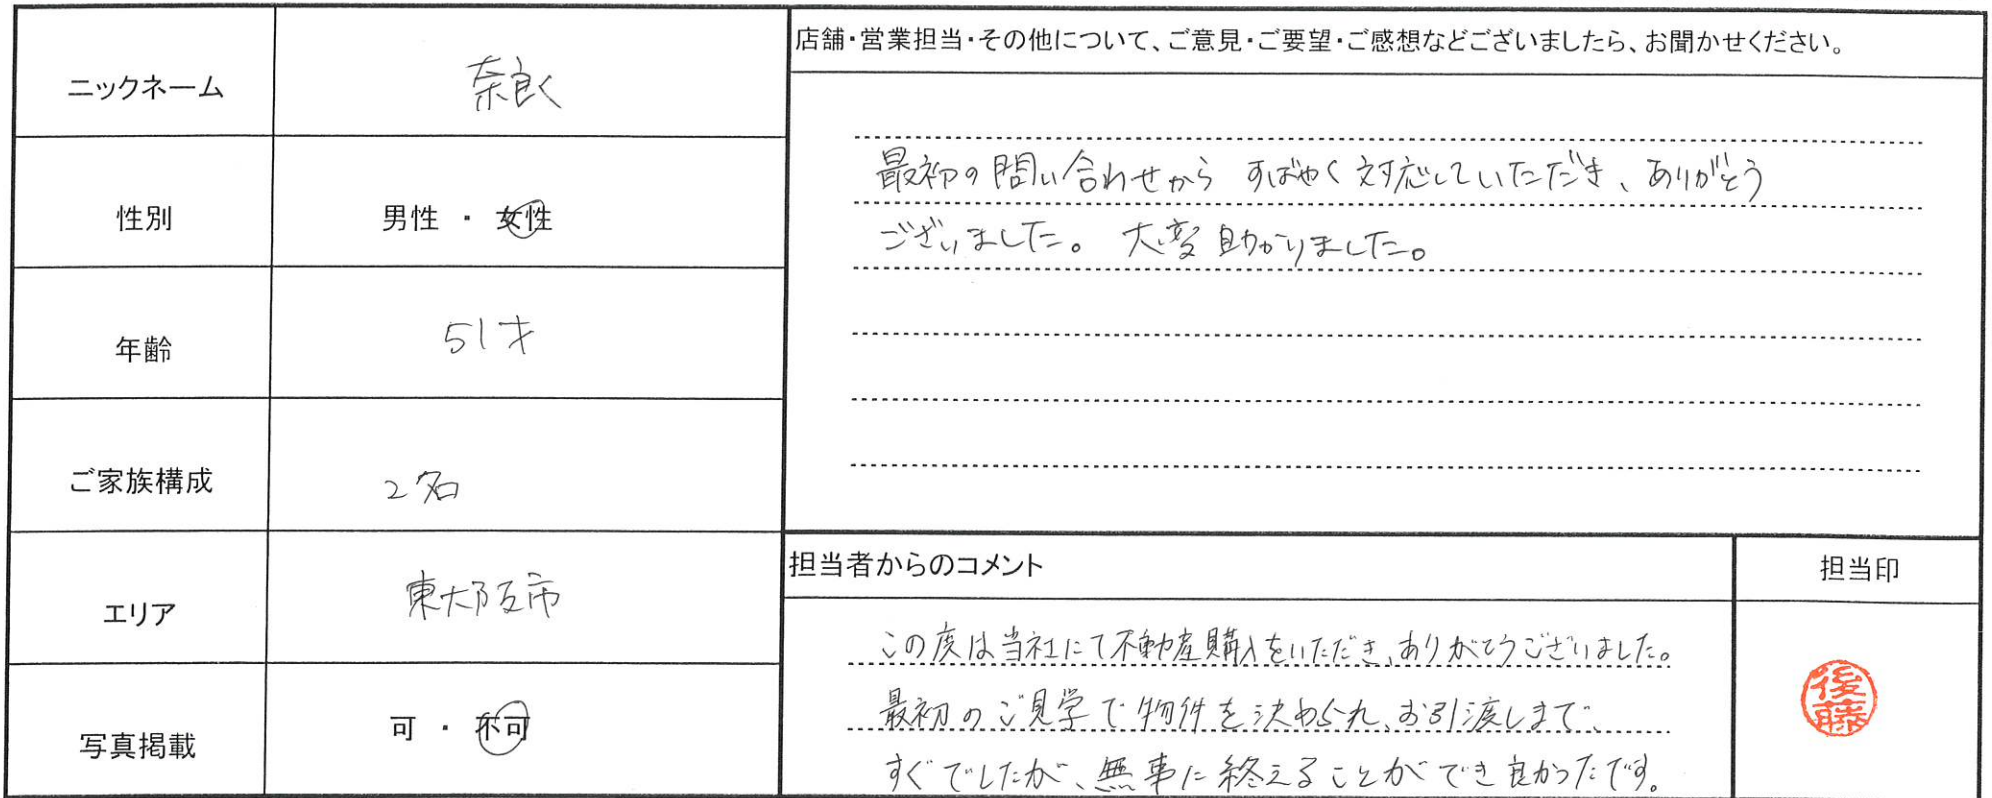 ニックネーム
奈良く
性別
男性 ・ 女性
年齢
51才
ご家族構成
2名
エリア
東大阪市
写真掲載
可 ・ 不可
店舗・営業担当・その他について、ご意見・ご要望・ご感想などございましたら、お聞かせください。
最初の問い合わせから すばやく対応していただき、ありがとう
ございました。 大変助かりました。
担当者からのコメント
この度は当社にて不動産購入をいただき、ありがとうございました。
最初のご見学で物件を決められ、お引渡しまで、
すぐでしたが、無事に終えることができ良かったです。
担当印
後藤